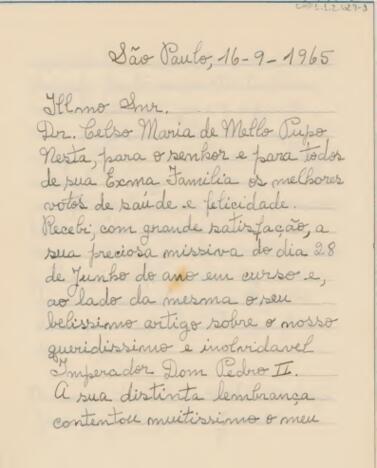 São Paulo, 16-9-1965
Illmo Snr.
Dr. Celso Maria de Mello Pupo
Nesta, para o senhor e para todos
de sua Exma Familia os melhores
votos de saúde e felicidade.
Recebi, com grande satisfação, a
sua preciosa missiva do dia 28
de Junho do ano em curso e,
ao lado da mesma o seu
belissimo artigo sobre o nosso
queridissimo e inolvidavel
Imperador Dom Pedro II.
A sua distinta lembrança
contentou muitissimo o meu